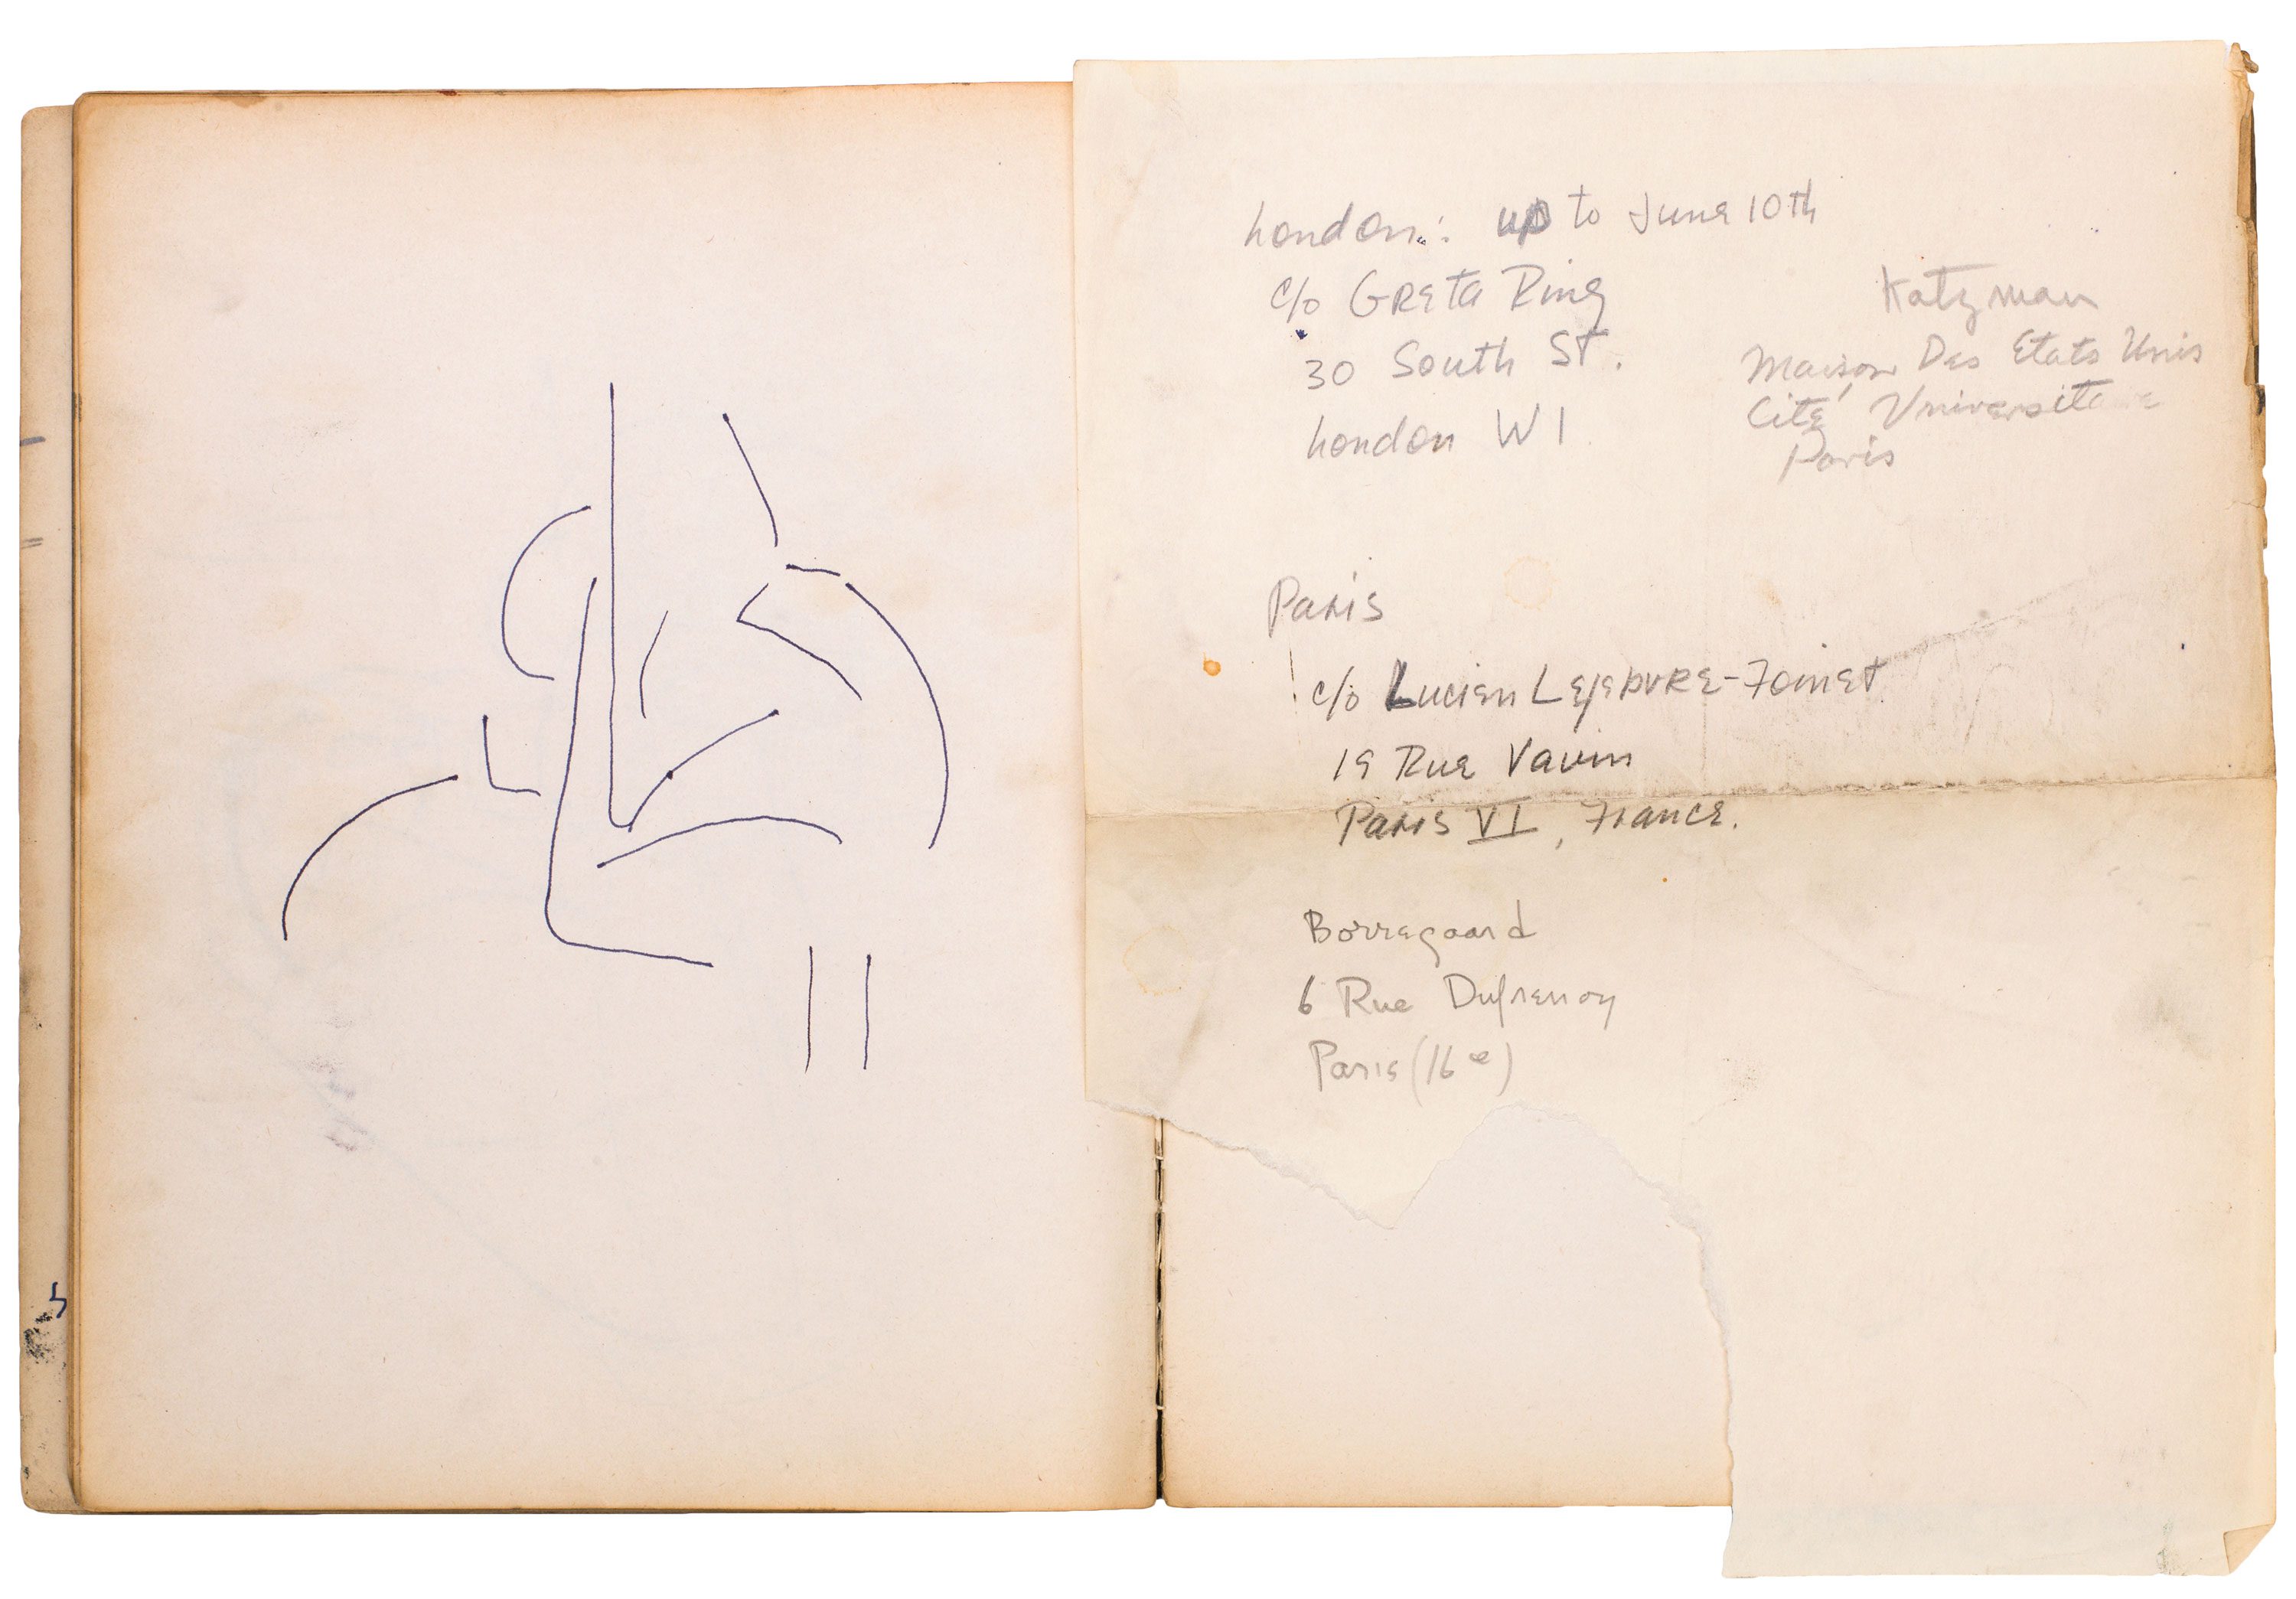 London: up to June 10th
c/o Greta Ring
30 South St.
London W1
Katzman
Maison Des Etats Unis
Cité Universitaire
Paris
Paris
c/o Lucien Lefebvre-Foinet
19 Rue Vavin
Paris VI, France.
Borregaard
6 Rue Dufrenoy
Paris (16e)